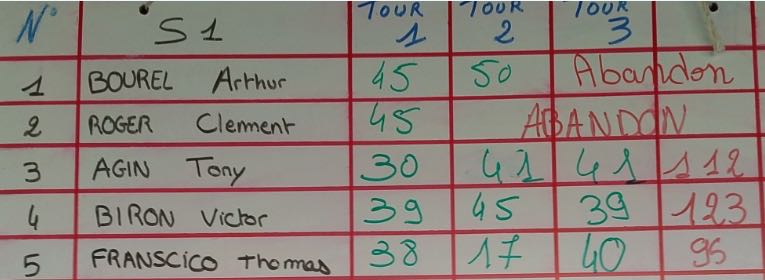 N° S1 TOUR 1 TOUR 2 TOUR 3
1 BOUREL Arthur 45 50 Abandon
2 ROGER Clement 45 ABANDON
3 AGIN Tony 30 41 41 112
4 BIRON Victor 39 45 39 123
5 FRANSCICO Thomas 38 17 40 95